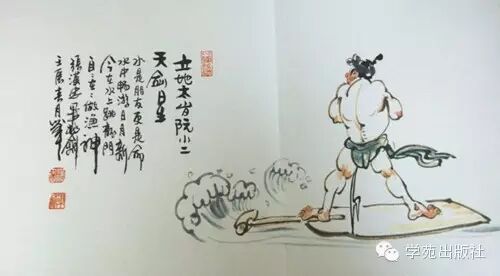 立地太岁阮小二
天剑星
水是朋友更是命
水中畅游日月新
今在水上跳龙门
自主自在做渔神
壬辰春月
学苑出版社